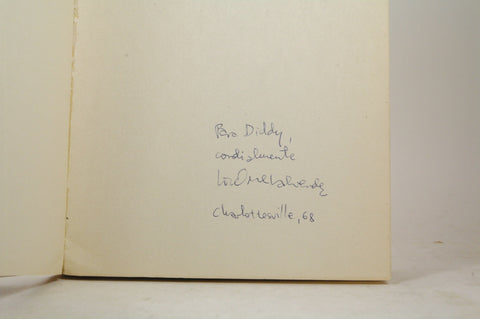 Para Diddy,
cordialmente
Charlottesville, 68